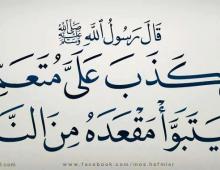 قَالَ رَسُولُ اللَّهِ ﷺ
كَذَبَ عَلَىَّ مُتَعَمِّ
يَتَبَوَّأْ مَقْعَدَهُ مِنَ النَّ
www.facebook.com/